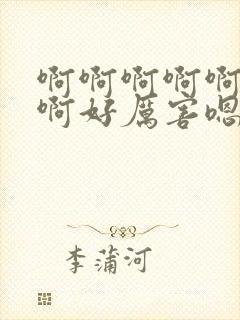 啊啊啊啊啊
啊好厉害嗯
李蒲河